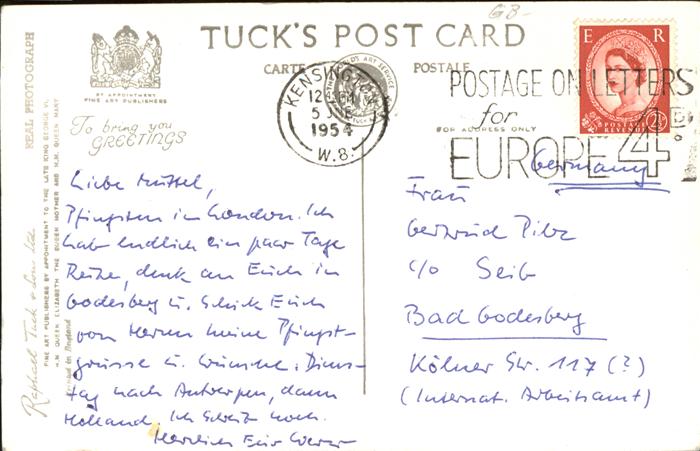 GB-
TUCK'S POST CARD
CARTE POSTALE
BY APPOINTMENT
FINE ART PUBLISHERS
REAL PHOTOGRAPH
To bring you
GREETINGS
KENSINGTON
12
5
1954
W.8.
POSTAGE ON LETTERS
for
EUROPE 4D.
FOR ADDRESS ONLY
E R
POSTAGE
REVENUE
2½
Raphael Tuck & Sons Ltd.
FINE ART PUBLISHERS BY APPOINTMENT TO THE LATE KING GEORGE VI,
H.M. QUEEN ELIZABETH THE QUEEN MOTHER AND H.M. QUEEN MARY
Liebe Muttel,
Pfingsten in London. Ich
hab endlich ein paar Tage
Ruhe, denk an Euch in
Godesberg u. schick Euch
von Herzen meine Pfingst-
grüsse u. Wünsche. Diens-
tag nach Antwerpen, dann
Holland. Ich schreib noch.
Herzlich Euer Werner
Germany
Frau
Gertrud
c/o Seib
Bad Godesberg
Kölner Str. 117 (?)
(Internat. Arbeitsamt)